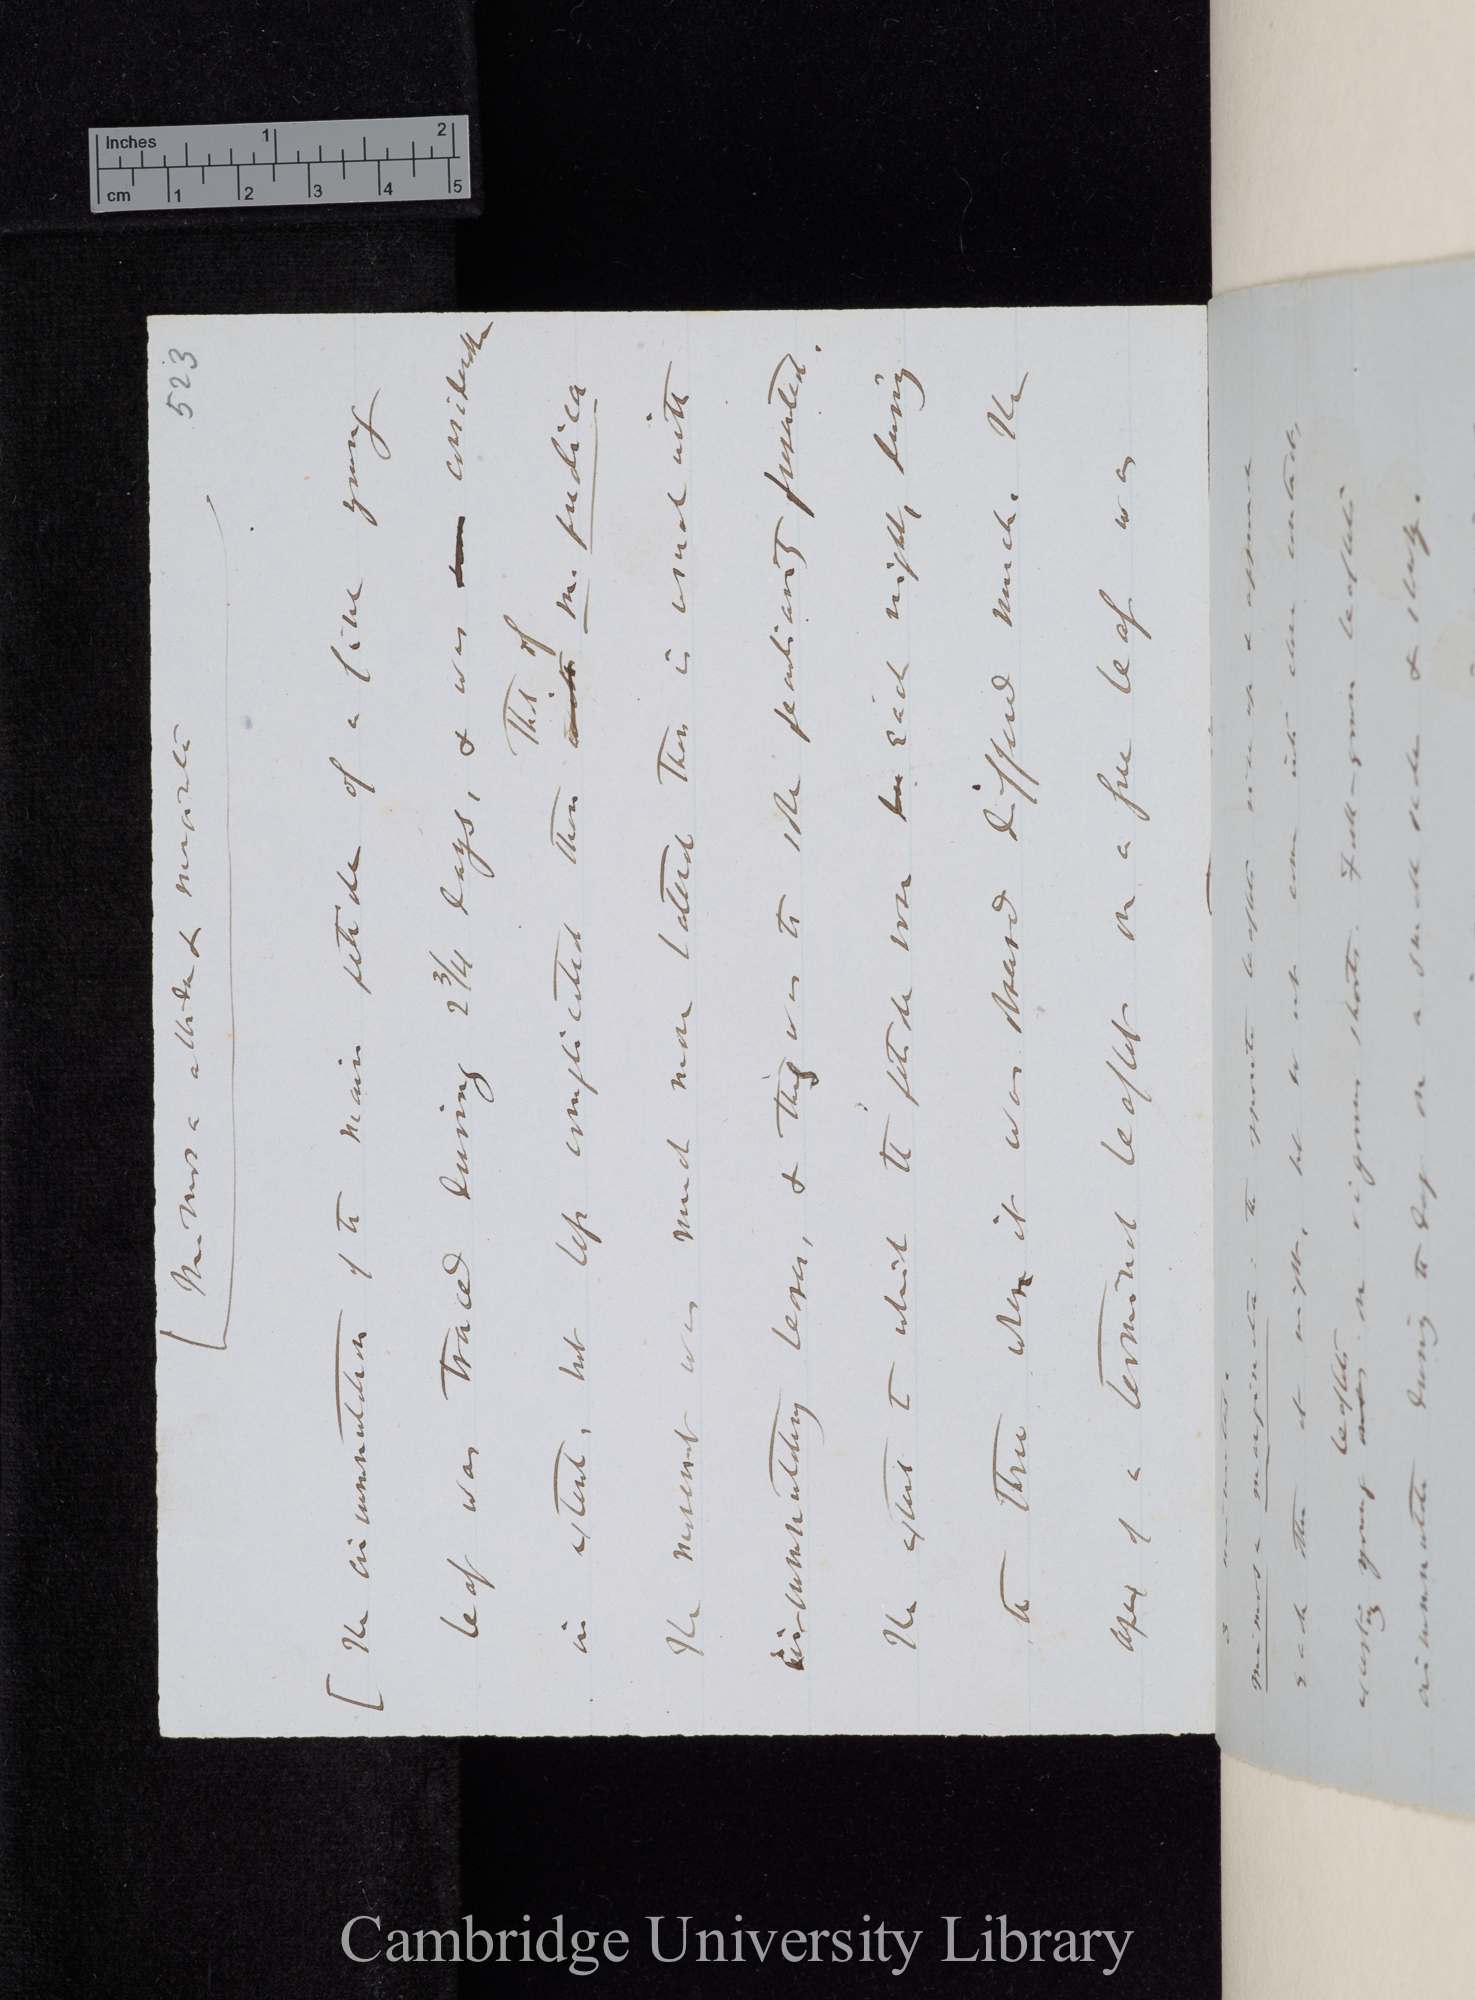 523
[Mimosa albida & marginata
[The circumnutation of the main petiole of a fine young
leaf was traced during 2 3/4 days, & was considerable
in extent, but less complicated than that of M. pudica
The movement was much more lateral than is usual with
circumnutating leaves, & this was the sole peculiarity presented.
The extent to which the petiole rose each night, during
the three when it was observed differed much. The
apex of a terminal leaflet on a free leaf was
3 minutes.
Mimosa marginata: the opposite leaflets rise up & approach
each other at night, but do not come into close contact,
young leaflets on vigorous shoots. Full-grown leaflets
circumnutate during the day on a small scale & slowly.
Inches
1
2
cm
1
2
3
4
5
Cambridge University Library